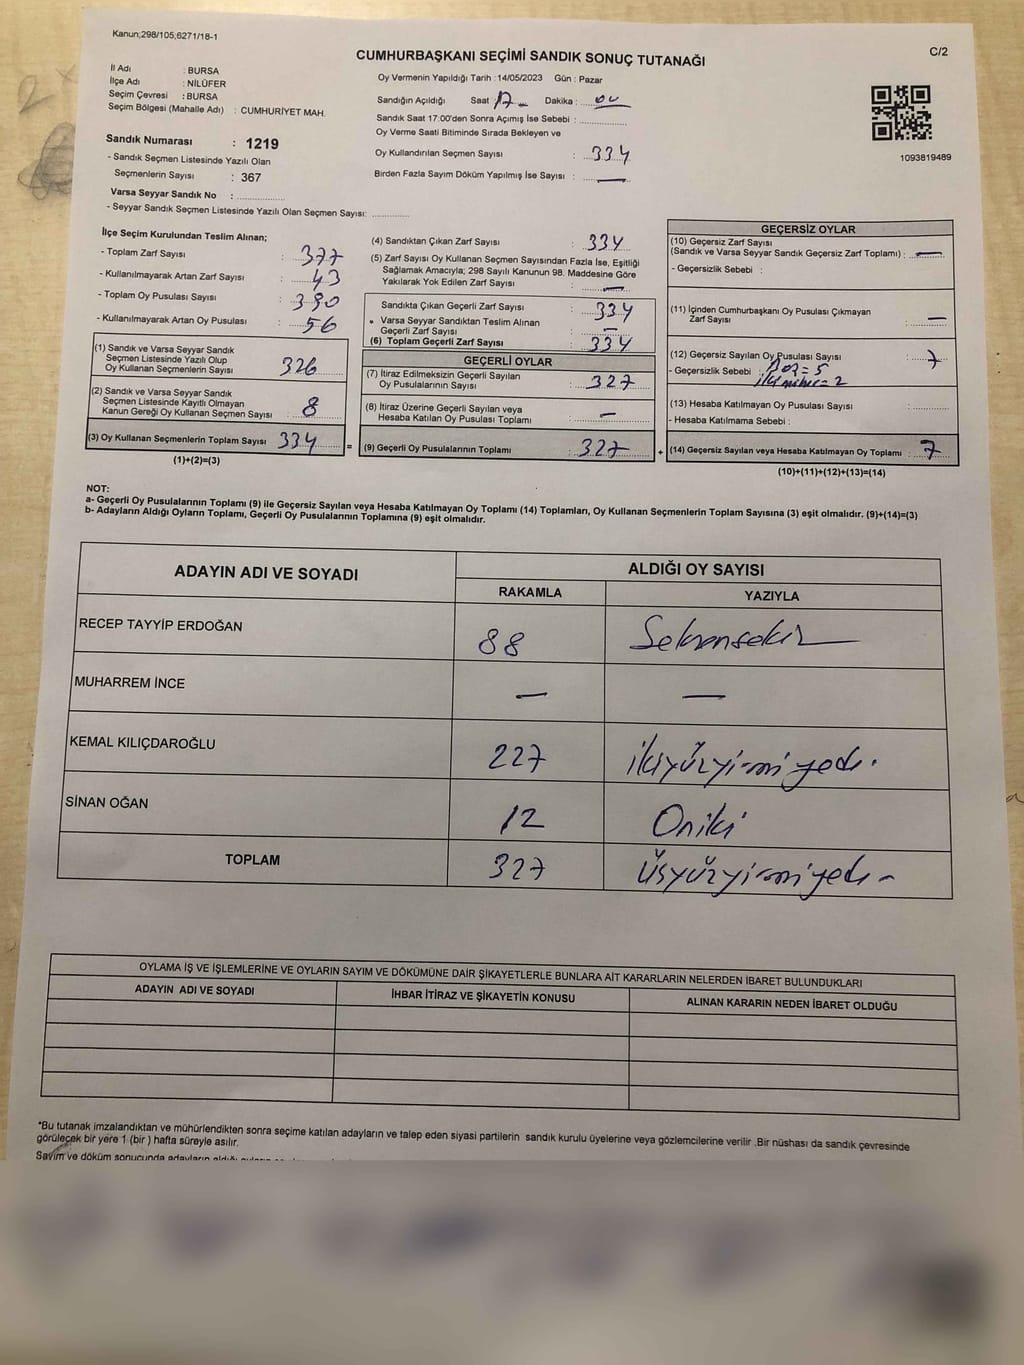 Kanun;298/105,6271/18-1
C/2
CUMHURBAŞKANI SEÇİMİ SANDIK SONUÇ TUTANAĞI
İl Adı : BURSA
İlçe Adı : NİLÜFER
Seçim Çevresi : BURSA
Seçim Bölgesi (Mahalle Adı) : CUMHURİYET MAH.
Sandık Numarası : 1219
- Sandık Seçmen Listesinde Yazılı Olan
Seçmenlerin Sayısı : 367
Varsa Seyyar Sandık No :
- Seyyar Sandık Seçmen Listesinde Yazılı Olan Seçmen Sayısı:
Oy Vermenin Yapıldığı Tarih :14/05/2023 Gün : Pazar
Sandığın Açıldığı Saat 17 Dakika : 00
Sandık Saat 17:00'den Sonra Açımış İse Sebebi :
Oy Verme Saati Bitiminde Sırada Bekleyen ve
Oy Kullandırılan Seçmen Sayısı : 334
Birden Fazla Sayım Döküm Yapılmış İse Sayısı : —
1093819489
İlçe Seçim Kurulundan Teslim Alınan;
- Toplam Zarf Sayısı : 377
- Kullanılmayarak Artan Zarf Sayısı : 43
- Toplam Oy Pusulası Sayısı : 390
- Kullanılmayarak Artan Oy Pusulası : 56
(1) Sandık ve Varsa Seyyar Sandık
Seçmen Listesinde Yazılı Olup
Oy Kullanan Seçmenlerin Sayısı 326
(2) Sandık ve Varsa Seyyar Sandık
Seçmen Listesinde Kayıtlı Olmayan
Kanun Gereği Oy Kullanan Seçmen Sayısı 8
(3) Oy Kullanan Seçmenlerin Toplam Sayısı 334
(1)+(2)=(3)
(4) Sandıktan Çıkan Zarf Sayısı : 334
(5) Zarf Sayısı Oy Kullanan Seçmen Sayısından Fazla İse, Eşitliği
Sağlamak Amacıyla; 298 Sayılı Kanunun 98. Maddesine Göre
Yakılarak Yok Edilen Zarf Sayısı : —
Sandıkta Çıkan Geçerli Zarf Sayısı : 334
• Varsa Seyyar Sandıktan Teslim Alınan
Geçerli Zarf Sayısı : —
(6) Toplam Geçerli Zarf Sayısı : 334
GEÇERLİ OYLAR
(7) İtiraz Edilmeksizin Geçerli Sayılan
Oy Pusulalarının Sayısı : 327
(8) İtiraz Üzerine Geçerli Sayılan veya
Hesaba Katılan Oy Pusulası Toplamı : —
= (9) Geçerli Oy Pusulalarının Toplamı : 327
GEÇERSİZ OYLAR
(10) Geçersiz Zarf Sayısı
(Sandık ve Varsa Seyyar Sandık Geçersiz Zarf Toplamı) : —
- Geçersizlik Sebebi :
(11) İçinden Cumhurbaşkanı Oy Pusulası Çıkmayan
Zarf Sayısı : —
(12) Geçersiz Sayılan Oy Pusulası Sayısı : 7
- Geçersizlik Sebebi : Boz = 5
iki mühür = 2
(13) Hesaba Katılmayan Oy Pusulası Sayısı :
- Hesaba Katılmama Sebebi :
+ (14) Geçersiz Sayılan veya Hesaba Katılmayan Oy Toplamı : 7
(10)+(11)+(12)+(13)=(14)
NOT:
a- Geçerli Oy Pusulalarının Toplamı (9) ile Geçersiz Sayılan veya Hesaba Katılmayan Oy Toplamı (14) Toplamları, Oy Kullanan Seçmenlerin Toplam Sayısına (3) eşit olmalıdır. (9)+(14)=(3)
b- Adayların Aldığı Oyların Toplamı, Geçerli Oy Pusulalarının Toplamına (9) eşit olmalıdır.
ADAYIN ADI VE SOYADI ALDIĞI OY SAYISI
RAKAMLA YAZIYLA
RECEP TAYYİP ERDOĞAN 88 Seksensekiz
MUHARREM İNCE — —
KEMAL KILIÇDAROĞLU 227 ikiyüzyirmiyedi.
SİNAN OĞAN 12 Oniki
TOPLAM 327 Üçyüzyirmiyedi
OYLAMA İŞ VE İŞLEMLERİNE VE OYLARIN SAYIM VE DÖKÜMÜNE DAİR ŞİKAYETLERLE BUNLARA AİT KARARLARIN NELERDEN İBARET BULUNDUKLARI
ADAYIN ADI VE SOYADI İHBAR İTİRAZ VE ŞİKAYETİN KONUSU ALINAN KARARIN NEDEN İBARET OLDUĞU
*Bu tutanak imzalandıktan ve mühürlendikten sonra seçime katılan adayların ve talep eden siyasi partilerin sandık kurulu üyelerine veya gözlemcilerine verilir .Bir nüshası da sandık çevresinde
görülecek bir yere 1 (bir ) hafta süreyle asılır.
Sayım ve döküm sonucunda adayların aldığı